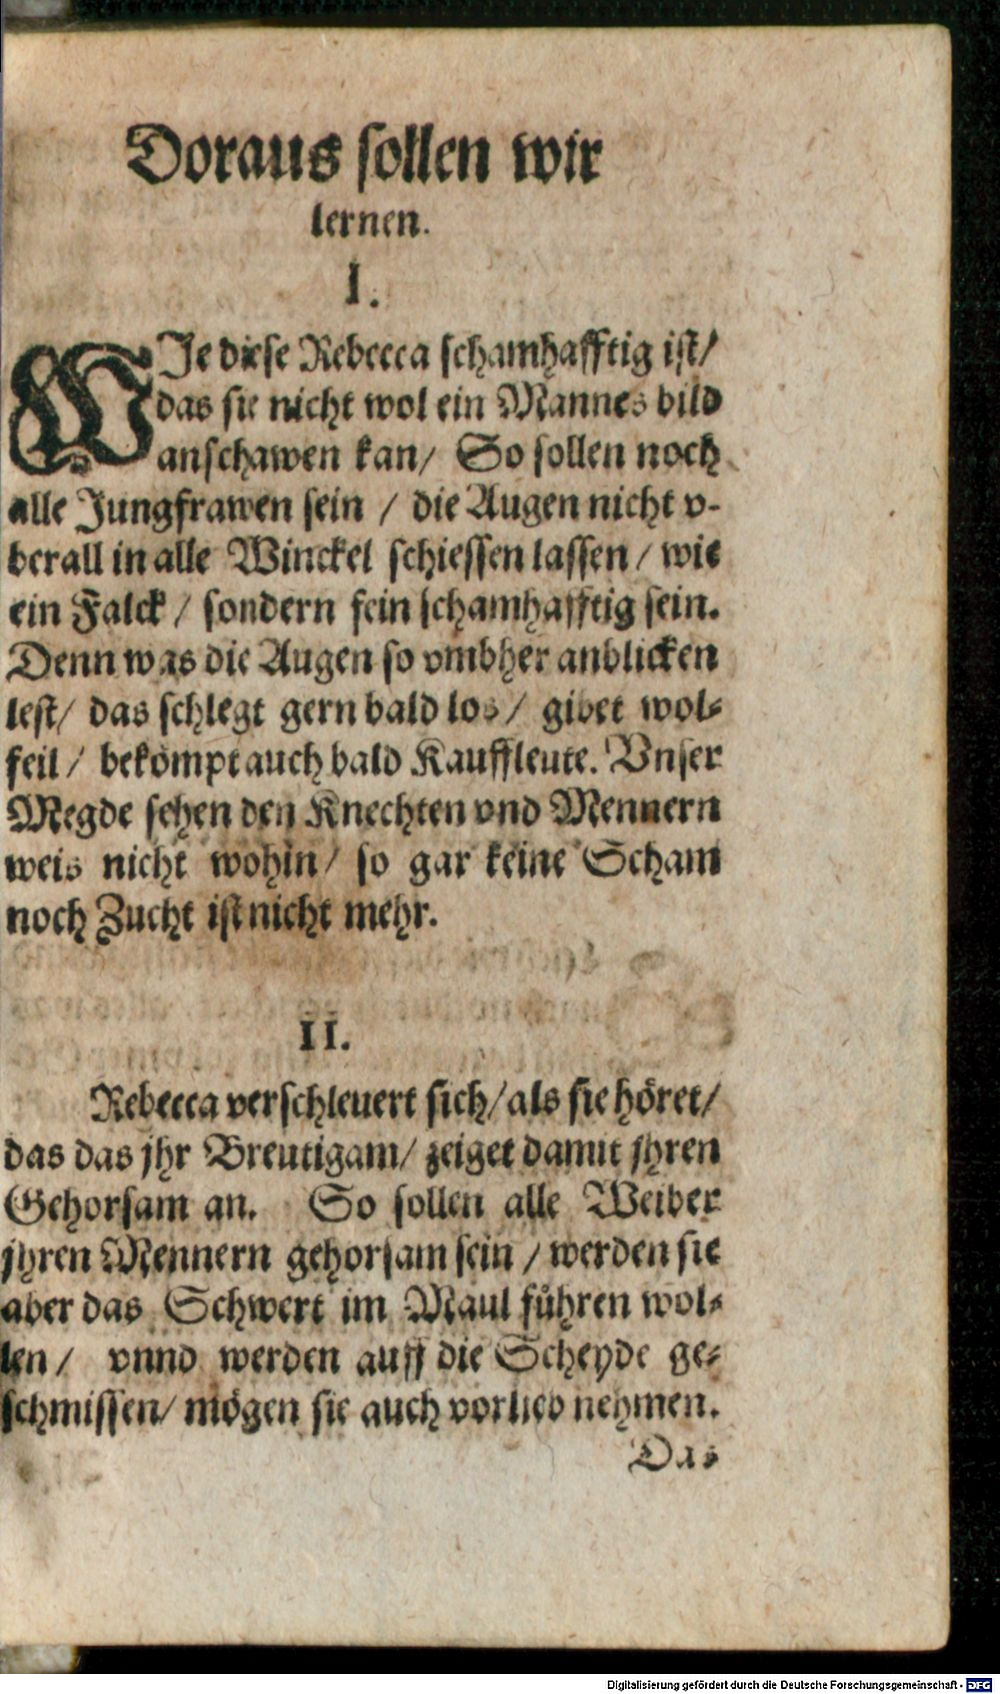 Doraus sollen wir
lernen.
I.
WIe diese Rebecca schamhafftig ist/
das sie nicht wol ein Mannes bild
anschawen kan/ So sollen noch
alle Jungfrawen sein / die Augen nicht v-
berall in alle Winckel schiessen lassen / wie
ein Falck / sondern fein schamhafftig sein.
Denn was die Augen so vmbher anblicken
lest/ das schlegt gern bald los/ gibet wol-
feil / bekömpt auch bald Kauffleute. Vnser
Megde sehen den Knechten vnd Mennern
weis nicht wohin/ so gar keine Scham
noch Zucht ist nicht mehr.
II.
Rebecca verschleuert sich/ als sie höret/
das das jhr Breutigam/ zeiget damit jhren
Gehorsam an. So sollen alle Weiber
jhren Mennern gehorsam sein / werden sie
aber das Schwert im Maul führen wol-
len / vnnd werden auff die Scheyde ge-
schmissen/ mögen sie auch vorlieb nehmen.
Das
Digitalisierung gefördert durch die Deutsche Forschungsgemeinschaft - DFG